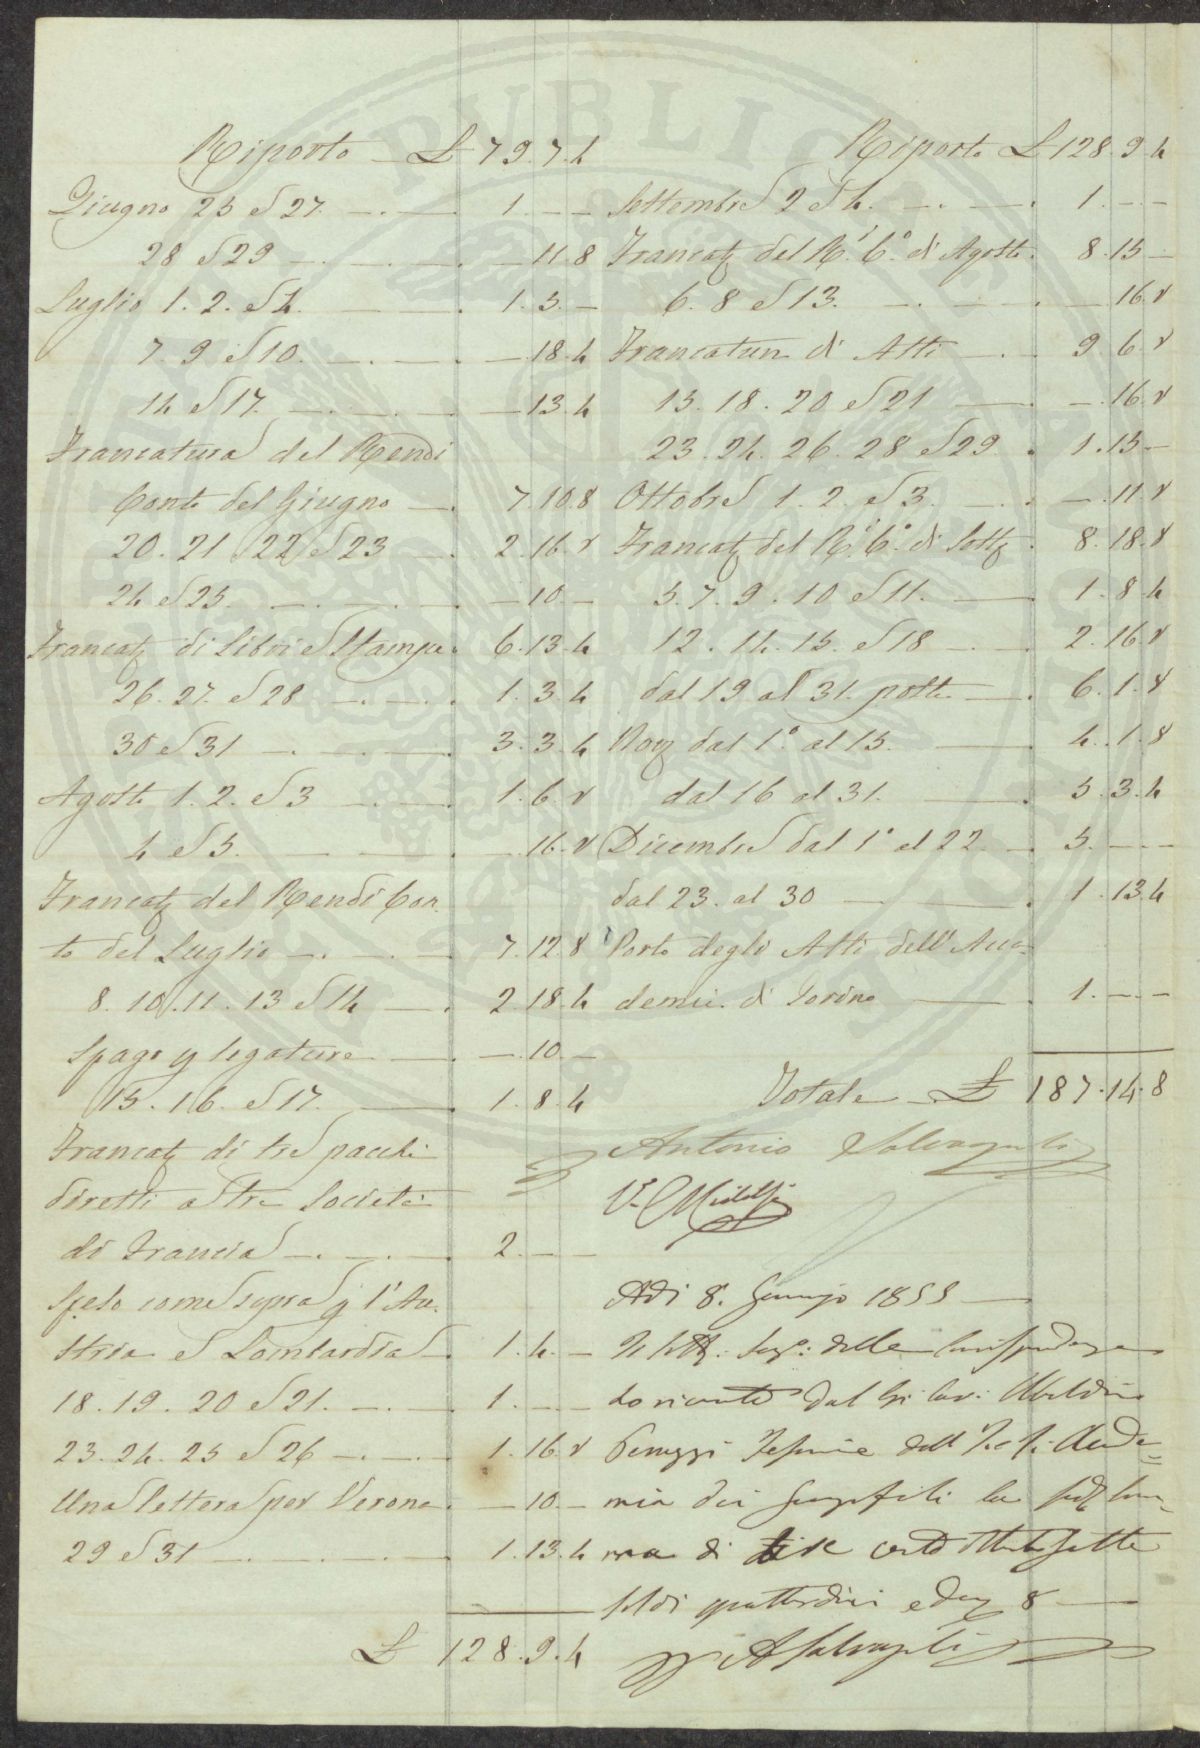 Riporto £ 79.7.4
Giugno 25 e 27. 1. — —
28 e 29 — 11.8
Luglio 1. 2. e 4. 1.5. —
7. 9 e 10. — 18.4
14 e 17. — 13.4
Francatura del Rendi
Conto del Giugno 7.10.8
20. 21 22 e 23 2.16.8
24 e 25. — 10 —
Francatᵃ di libri e Stampe 6.13.4
26. 27. e 28 1.3.4
30 e 31 3.3.4
Agosto 1. 2. e 3 1.6.8
4 e 5. — 16.8
Francatᵃ del Rendi Con
to del Luglio 7.12.8
8. 10. 11. 13 e 14 2.18.4
Spago p legature — 10 —
15. 16. e 17. 1.8.4
Francatᵃ di tre pacchi
diretti a tre Società
di Francia 2. — —
Spese come sopra p l'Au-
stria e Lombardia 1.4. —
18. 19. 20 e 21. 1. — —
23. 24. 25 e 26 1.16.8
Una lettera per Verona — 10 —
29 e 31 1.13.4
£ 128.9.4
Riporto £ 128.9.4
Settembre 2 e 4. 1. — —
Francatᵃ del R. Cº di Agosto. 8.15 —
6. 8 e 13. — 16.8
Francatura di Atti 9 6.8
15. 18. 20 e 21 — 16.8
23. 24. 26. 28 e 29. 1.15 —
Ottobre 1. 2. e 3. — 11.8
Francatᵃ del R. Cº di Sette 8.18.8
5. 7. 9. 10 e 11. 1.8.4
12. 14. 15. e 18 2.16.8
dal 19 al 31. 6.1.8
Nove dal 1.º al 15. 4.1.8
dal 16 al 31. 5.3.4
Dicembre dal 1º al 22 5. — —
dal 23. al 30 1.13.4
Porto degli Atti dell'Acca-
demia di Torino 1. — —
Totale £ 187.14.8
Antonio Salvagnoli
Vº CRidolfi
Adi 8. Gennajo 1855
Io sottº Segº delle Corrispondenze
ho ricevuto dal Sig. Cav. Ubaldino
Peruzzi dell' Accade-
mia dei Georgofili la somma
di Lire cento ottantasette
soldi quattordici e den 8
ASalvagnoli